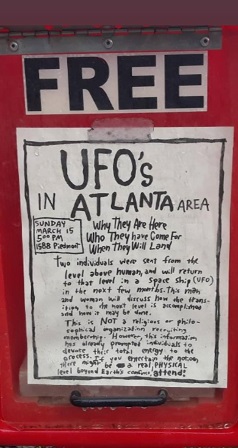 FREE
UFO's
IN ATLANTA AREA
SUNDAY
MARCH 15
5:00 PM
1588 Piedmont
Why They Are Here
Who They have Come For
When They Will Land
Two individuals were sent from the
level above human, and will return
to that level in a space ship (UFO)
in the next few months. This man
and woman will discuss how the trans-
ition to the next level is accomplished
and how it may be done.
This is NOT a religious or philo-
sophical organization recruiting
membership. However, this information
has already prompted individuals to
devote their total energy to the
process. If you entertain the notion
there might be a real, PHYSICAL
level beyond Earth's confines, attend!